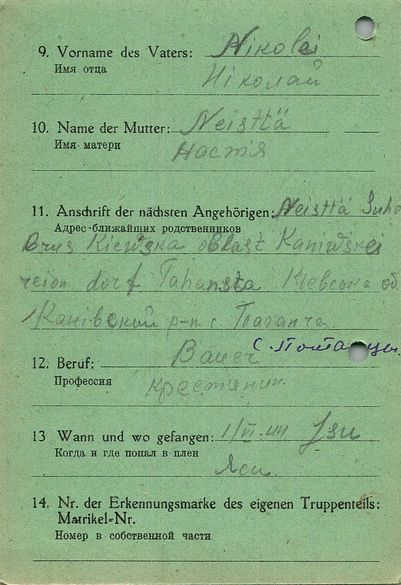 9. Vorname des Vaters: Nikolei
Имя отца
Ніколай
10. Name der Mutter: Neisttä
Имя матери
Настя
11. Anschrift der nächsten Angehörigen: Neisttä
Адрес ближайших родственников
Kiewska oblast Kaniwski
reion dorf Київська об
Канівский р-н с.
12. Beruf: Bauer
Профессия
Крестянин
13 Wann und wo gefangen: 1/VI-44
Когда и где попал в плен
Яси
14. Nr. der Erkennungsmarke des eigenen Truppenteils:
Matrikel-Nr.
Номер в собственной части